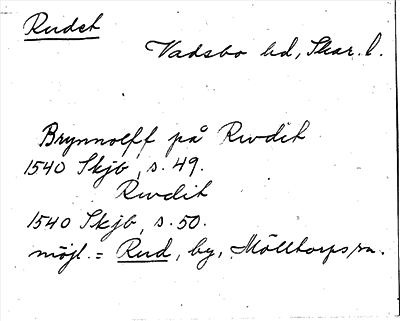 Rudet
Vadsbo hd, Skar. l.
Brynnolff på Rwdit
1540 Skjb, s. 49.
Rwdit
1540 Skjb, s. 50.
möjl. = Rud, by, Mölltorps sn.